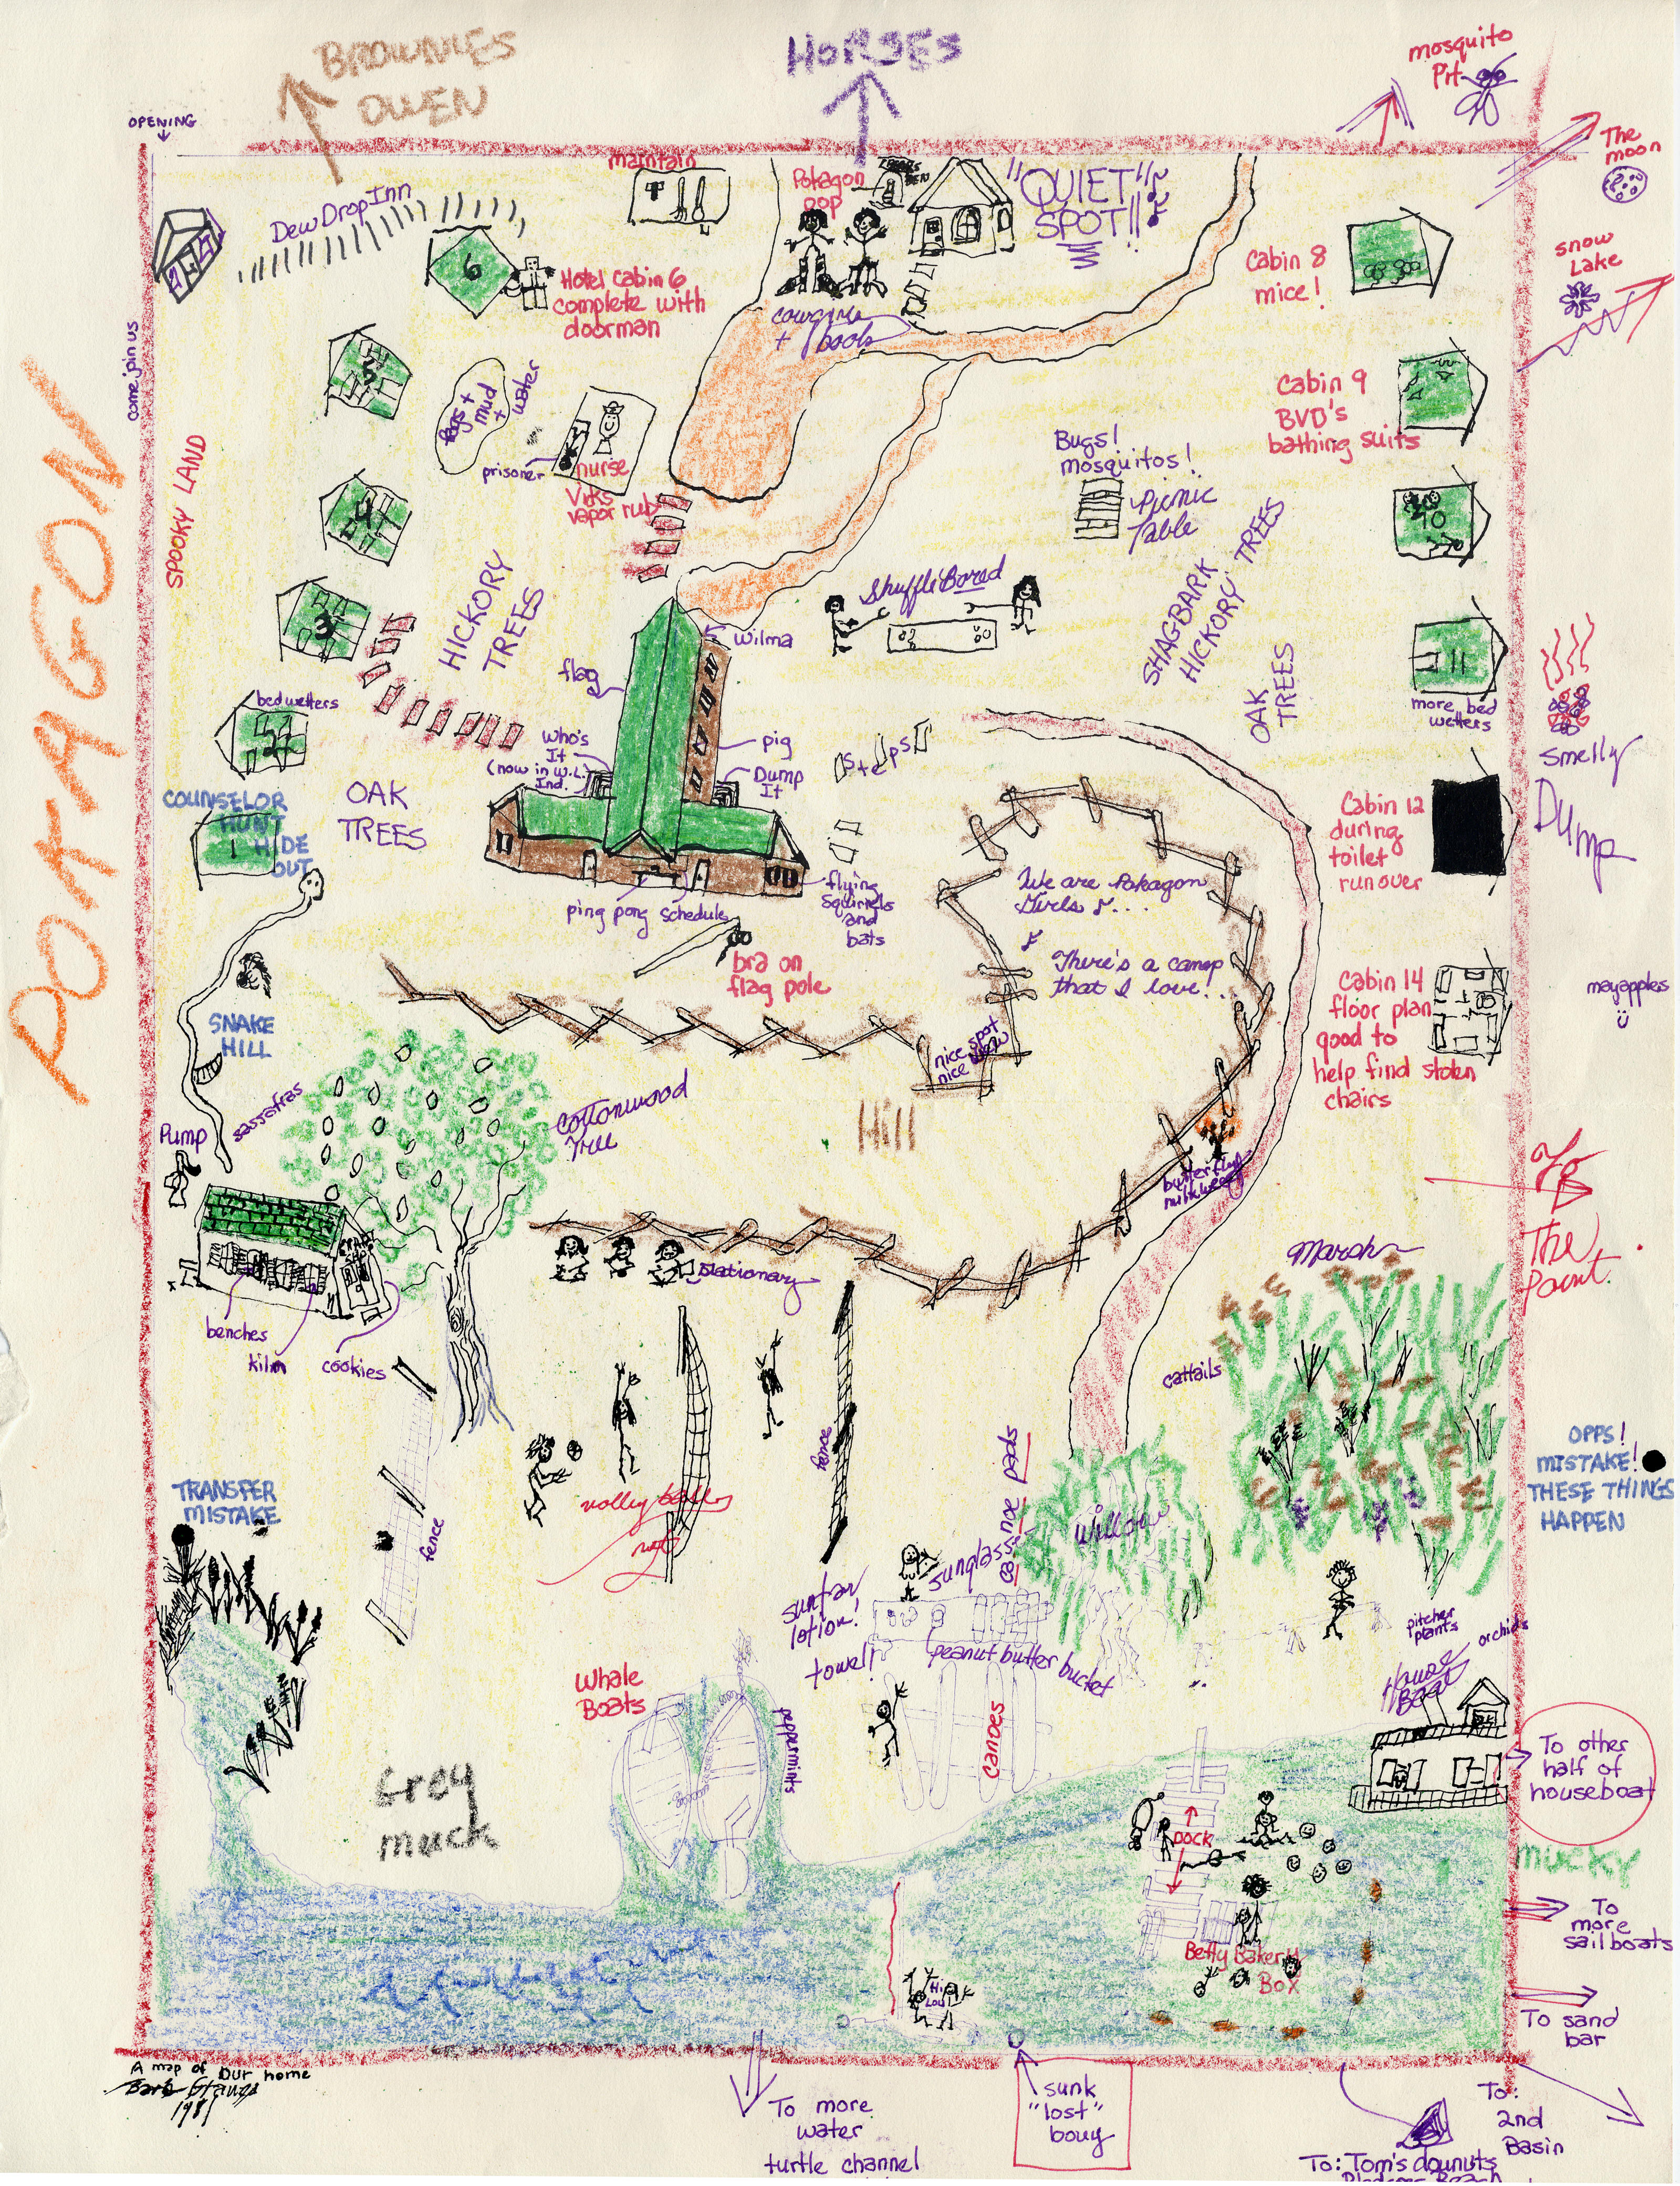 BROWNIES
OWEN
HORSES
mosquito
Pit
OPENING
The
moon
maintain
Pokagon
pop
"QUIET"
SPOT!!
Dew Drop Inn
6
Hotel Cabin 6
complete with
doorman
cowgirls
+ boots
Cabin 8
mice!
snow
Lake
come join us
5
Bugs +
mud +
water
prisoner
nurse
Vicks
vapor rub
Cabin 9
BVD's
bathing suits
Bugs!
mosquitos!
Picnic
Table
POKAGON
SPOOKY LAND
4
10
HICKORY
TREES
Shuffle Bored
SHAGBARK
HICKORY TREES
OAK
TREES
3
Wilma
flag
11
more bed
wetters
bedwetters
2
Who's
It
(now in W.L.)
Ind.
pig
Dump
It
steps
smelly
Dump
COUNSELOR
HUNT
HIDE
OUT
1
OAK
TREES
Cabin 12
during
toilet
run over
ping pong
schedule
flying
squirrels
and
bats
We are Pokagon
Girls ♪...
There's a camp
that I love!..
bra on
flag pole
Cabin 14
floor plan
good to
help find stolen
chairs
mayapples
SNAKE
HILL
nice spot
nice view
sassafras
Cottonwood
Tree
Hill
Pump
butterfly
milkweed
To
The
Point
stationary
Marsh
benches
kiln
cookies
cattails
fence
fence
volley ball
net
TRANSFER
MISTAKE
OPPS!
MISTAKE!
THESE THINGS
HAPPEN
Willow
ca-noe pads
sunglasses
suntan
lotion!
towel!
peanut butter bucket
pitcher
plants
orchids
House
Boat
Whale
Boats
peppermints
canoes
To other
half of
houseboat
Grey
muck
DOCK
MUCKY
To
more
sailboats
Betty Baker
Box
Hi
Lou!
To sand
bar
A map of Our home
1981
To more
water
turtle channel
sunk
"lost"
bouy
To:
2nd
Basin
To: Tom's dounuts
Beach